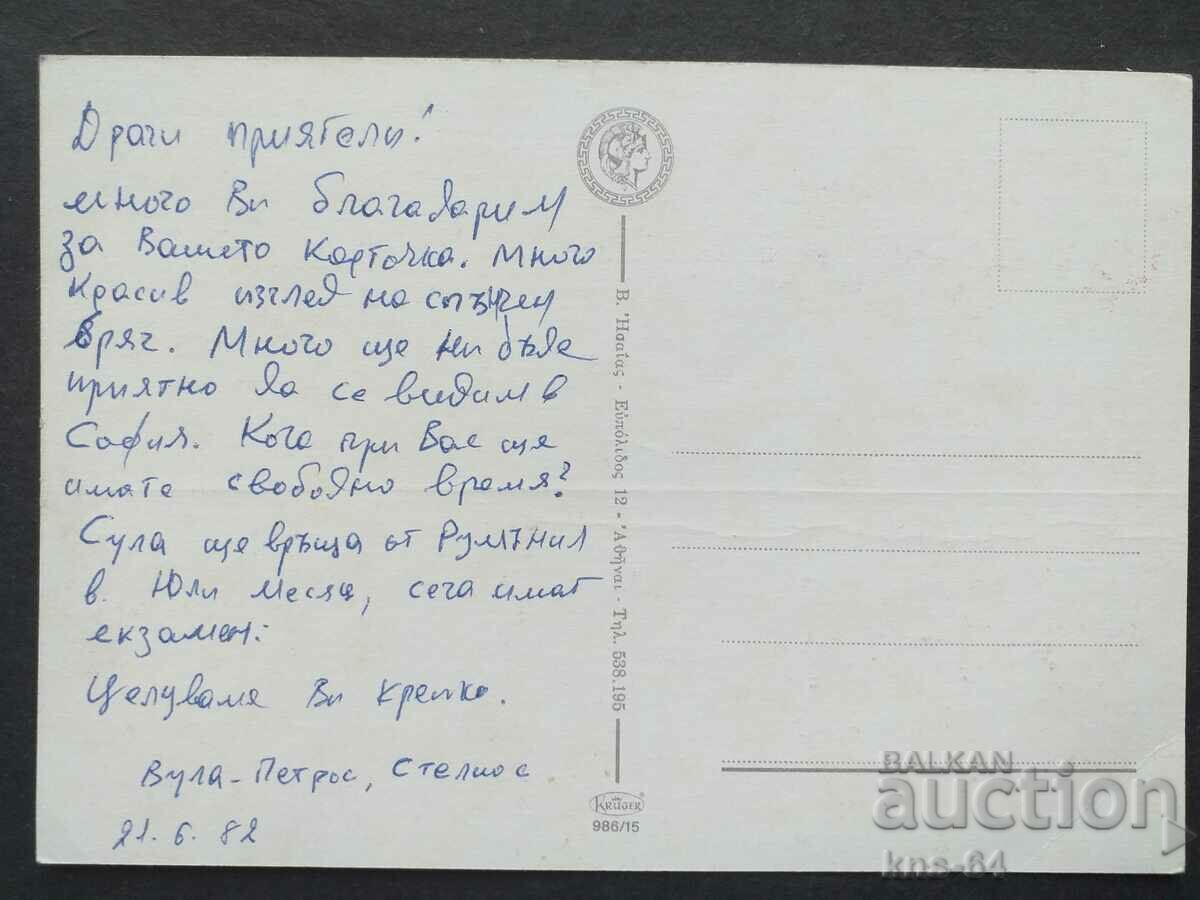 Драги приятели!
много Ви благадарим
за Вашето Карточка. Много
Красив изглед на слънчен
бряг. Много ще ни бъде
приятно да се видим в
София. Кога при Вас ще
имате свободно время?
Сула ще връща от Румъния
в. Юли месяц, сега имат
екзамен.
Целуваме Ви крепко.
Вула-Петрос, Стелиос
21. 6. 82
Β. Ἠσαΐας - Εὐπόλιδος 12 - Ἀθῆναι - Τηλ. 538.195
KRÜGER
986/15
BALKAN
auction
kns-64